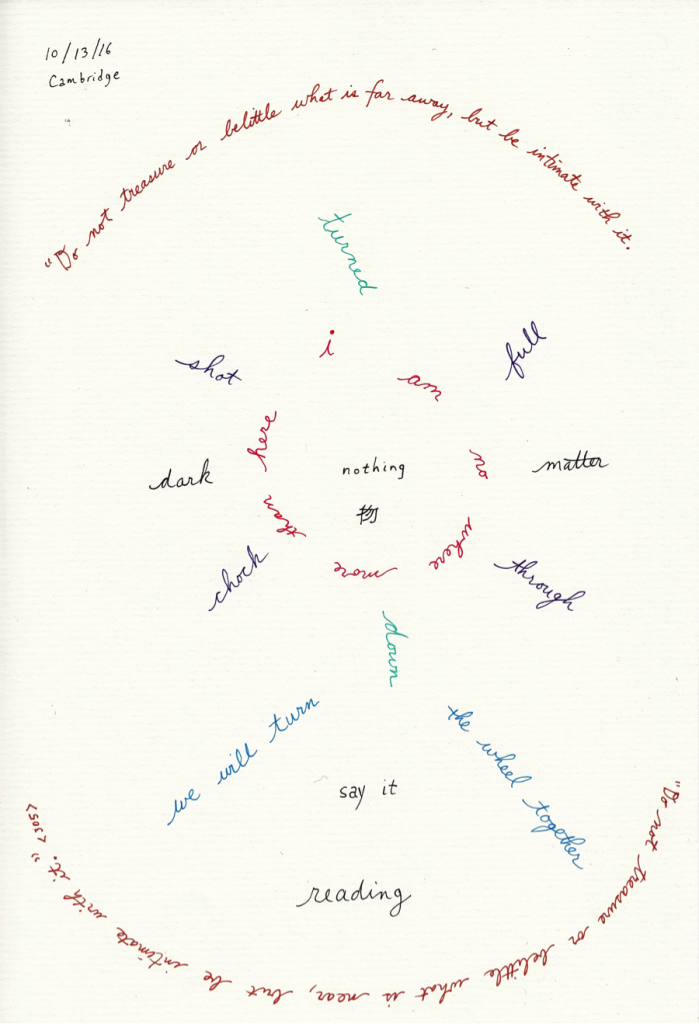 10/13/16
Cambridge
"Do not treasure or belittle what is far away, but be intimate with it.
turned
i am no where more than here
shot
full
dark
nothing
matter
物
chock
through
down
we will turn
the wheel together
say it
reading
"Do not treasure or belittle what is near, but be intimate with it." <305>